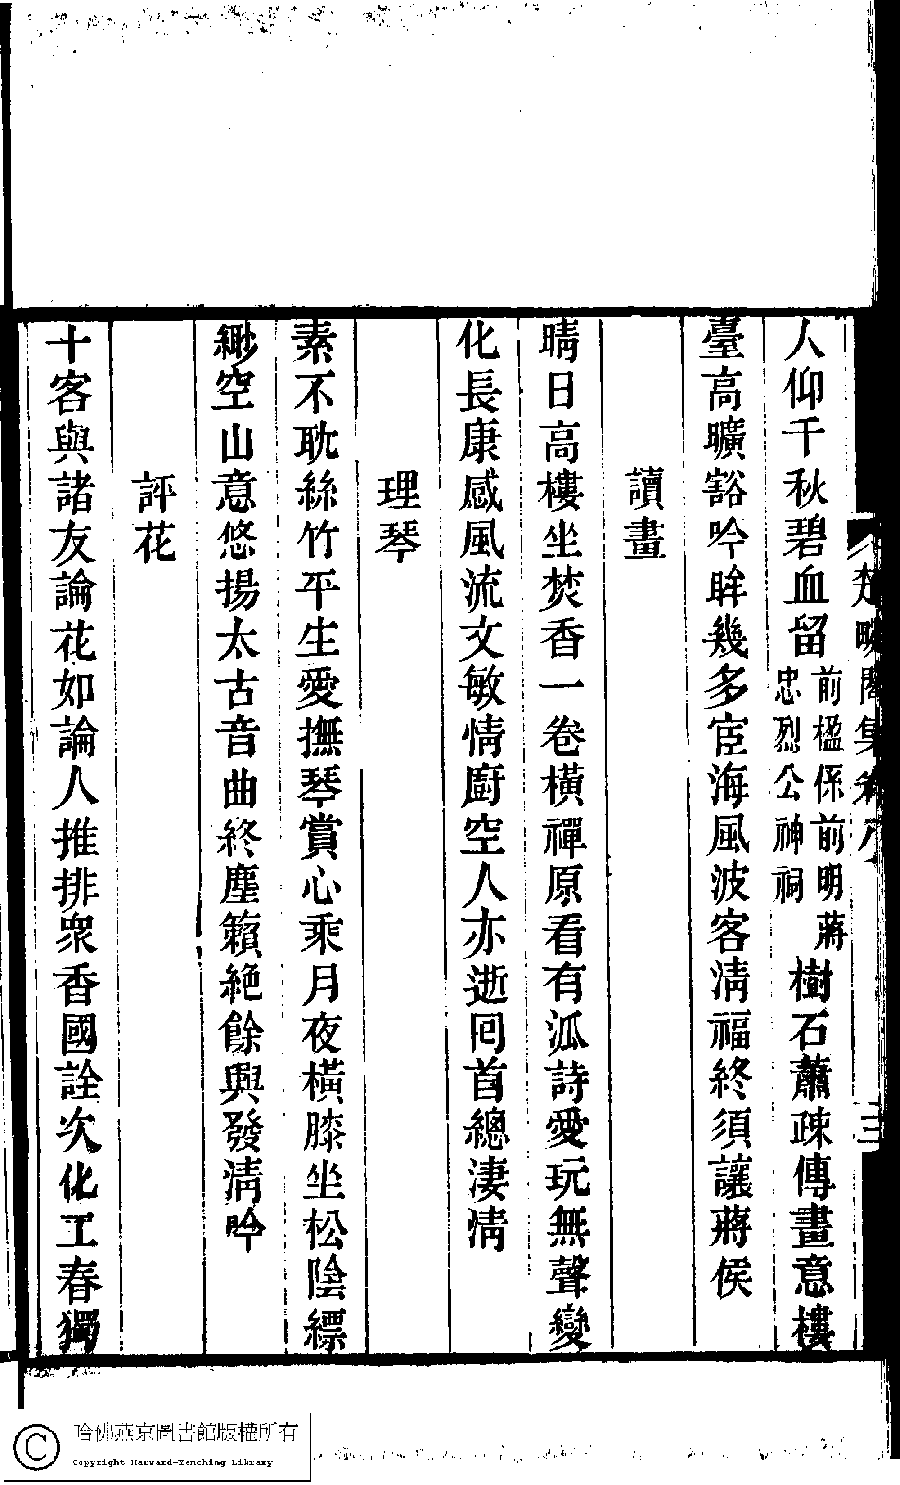 人仰千秋碧血留前楹係前明蔣忠烈公神祠樹石蕭疎傳畫意樓
臺高曠豁吟眸幾多宦海風波客淸福終須讓蔣侯
讀畫
晴日高樓坐焚香一卷橫禪原看有泒詩愛玩無聲變
化長康感風流文敏情廚空人亦逝囘首總淒情
理琴
素不耽絲竹平生愛撫琴賞心乘月夜橫膝坐松陰縹
緲空山意悠揚太古音曲終塵籟絶餘興發淸吟
評花
十客與諸友論花如論人推排衆香國詮次化工春獨
三
哈佛燕京圖書館版權所有
Copyright Harvard-Yenching Library